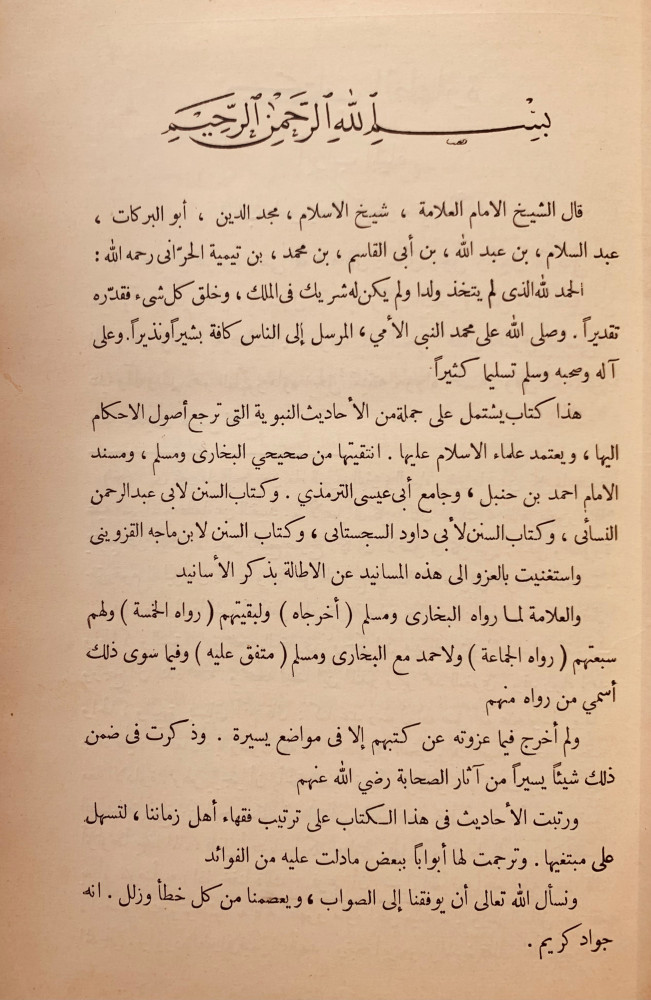 بِسْمِ اللهِ الرَّحْمٰنِ الرَّحِيْمِ
قال الشيخ الامام العلامة ، شيخ الاسلام ، مجد الدين ، أبو البركات ،
عبد السلام ، بن عبد الله ، بن أبى القاسم ، بن محمد ، بن تيمية الحرّانى رحمه الله :
الحمد لله الذى لم يتخذ ولدا ولم يكن له شريك فى الملك ، وخلق كل شىء فقدّره
تقديراً . وصلى الله على محمد النبي الأمي ، المرسل إلى الناس كافة بشيراً ونذيراً . وعلى
آله وصحبه وسلم تسليما كثيراً
هذا كتاب يشتمل على جملة من الأحاديث النبوية التى ترجع أصول الاحكام
اليها ، ويعتمد علماء الاسلام عليها . انتقيتها من صحيحي البخارى ومسلم ، ومسند
الامام احمد بن حنبل ، وجامع أبى عيسى الترمذي . وكتاب السنن لابى عبد الرحمن
النسأئى ، وكتاب السنن لأبى داود السجستانى ، وكتاب السنن لابن ماجه القزوينى
واستغنيت بالعزو الى هذه المسانيد عن الاطالة بذكر الأسانيد
والعلامة لما رواه البخارى ومسلم ( أخرجاه ) ولبقيتهم ( رواه الخمسة ) ولهم
سبعتهم ( رواه الجماعة ) ولاحمد مع البخارى ومسلم ( متفق عليه ) وفيما سوى ذلك
أسمي من رواه منهم
ولم أخرج فيما عزوته عن كتبهم إلا فى مواضع يسيرة . وذكرت فى ضمن
ذلك شيئاً يسيراً من آثار الصحابة رضي الله عنهم
ورتبت الأحاديث فى هذا الكتاب على ترتيب فقهاء أهل زماننا ، لتسهل
على مبتغيها . وترجمت لها أبواباً ببعض مادلت عليه من الفوائد
ونسأل الله تعالى أن يوفقنا إلى الصواب ، ويعصمنا من كل خطأ وزلل . انه
جواد كريم .